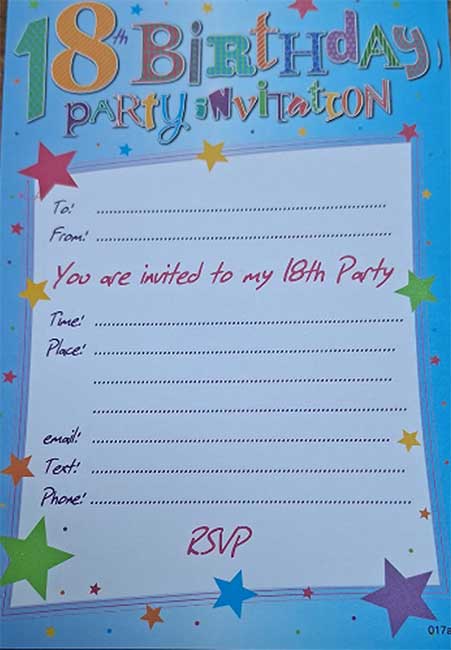 18th Birthday
Party invitation
To:
From:
You are invited to my 18th Party
Time:
Place:
email:
Text:
Phone:
RSVP
017a